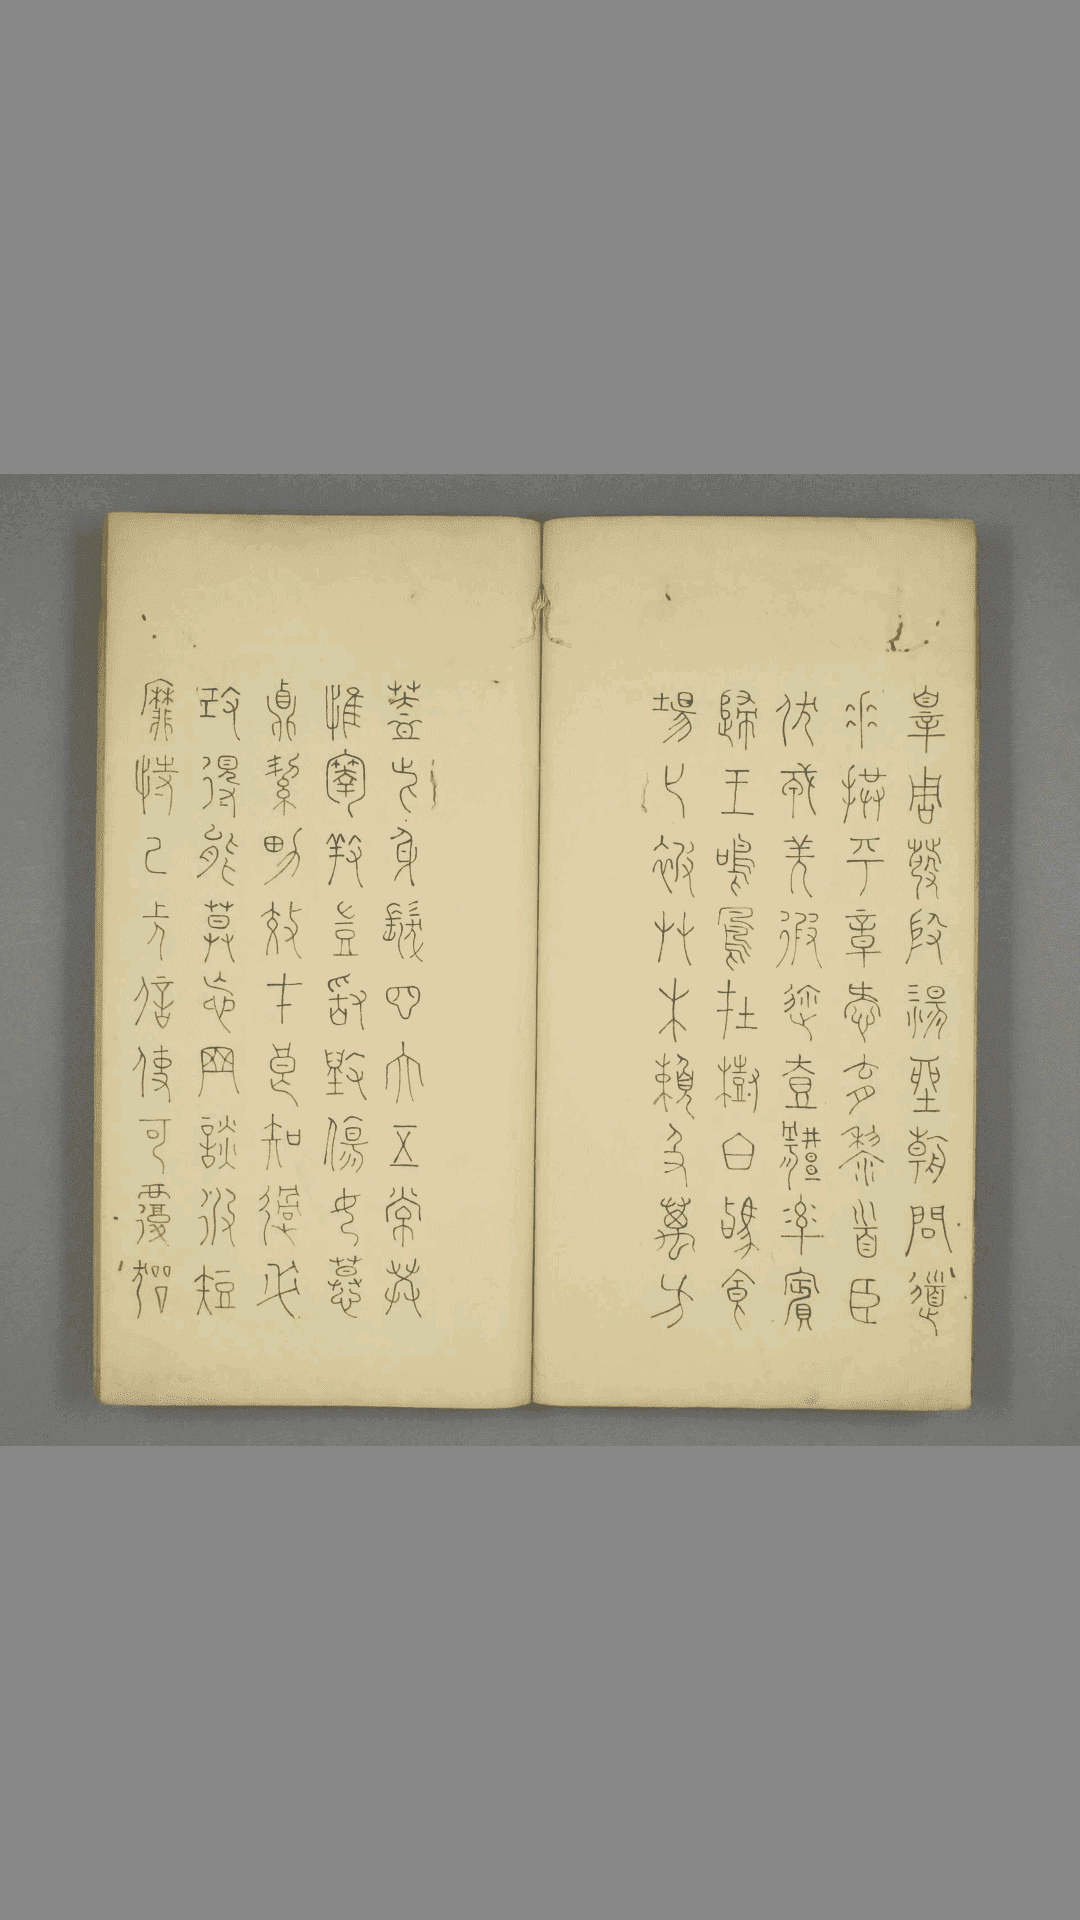 辠周發殷湯坐朝問道
垂拱平章愛育黎首臣
伏戎羌遐邇壹體率賓
歸王鳴鳳在樹白駒食
場化被艸木賴及萬方
蓋此身髮四大五常恭
惟鞠養豈敢毀傷女慕
貞絜男效才良知過必
改得能莫忘罔談彼短
靡恃己長信使可覆器